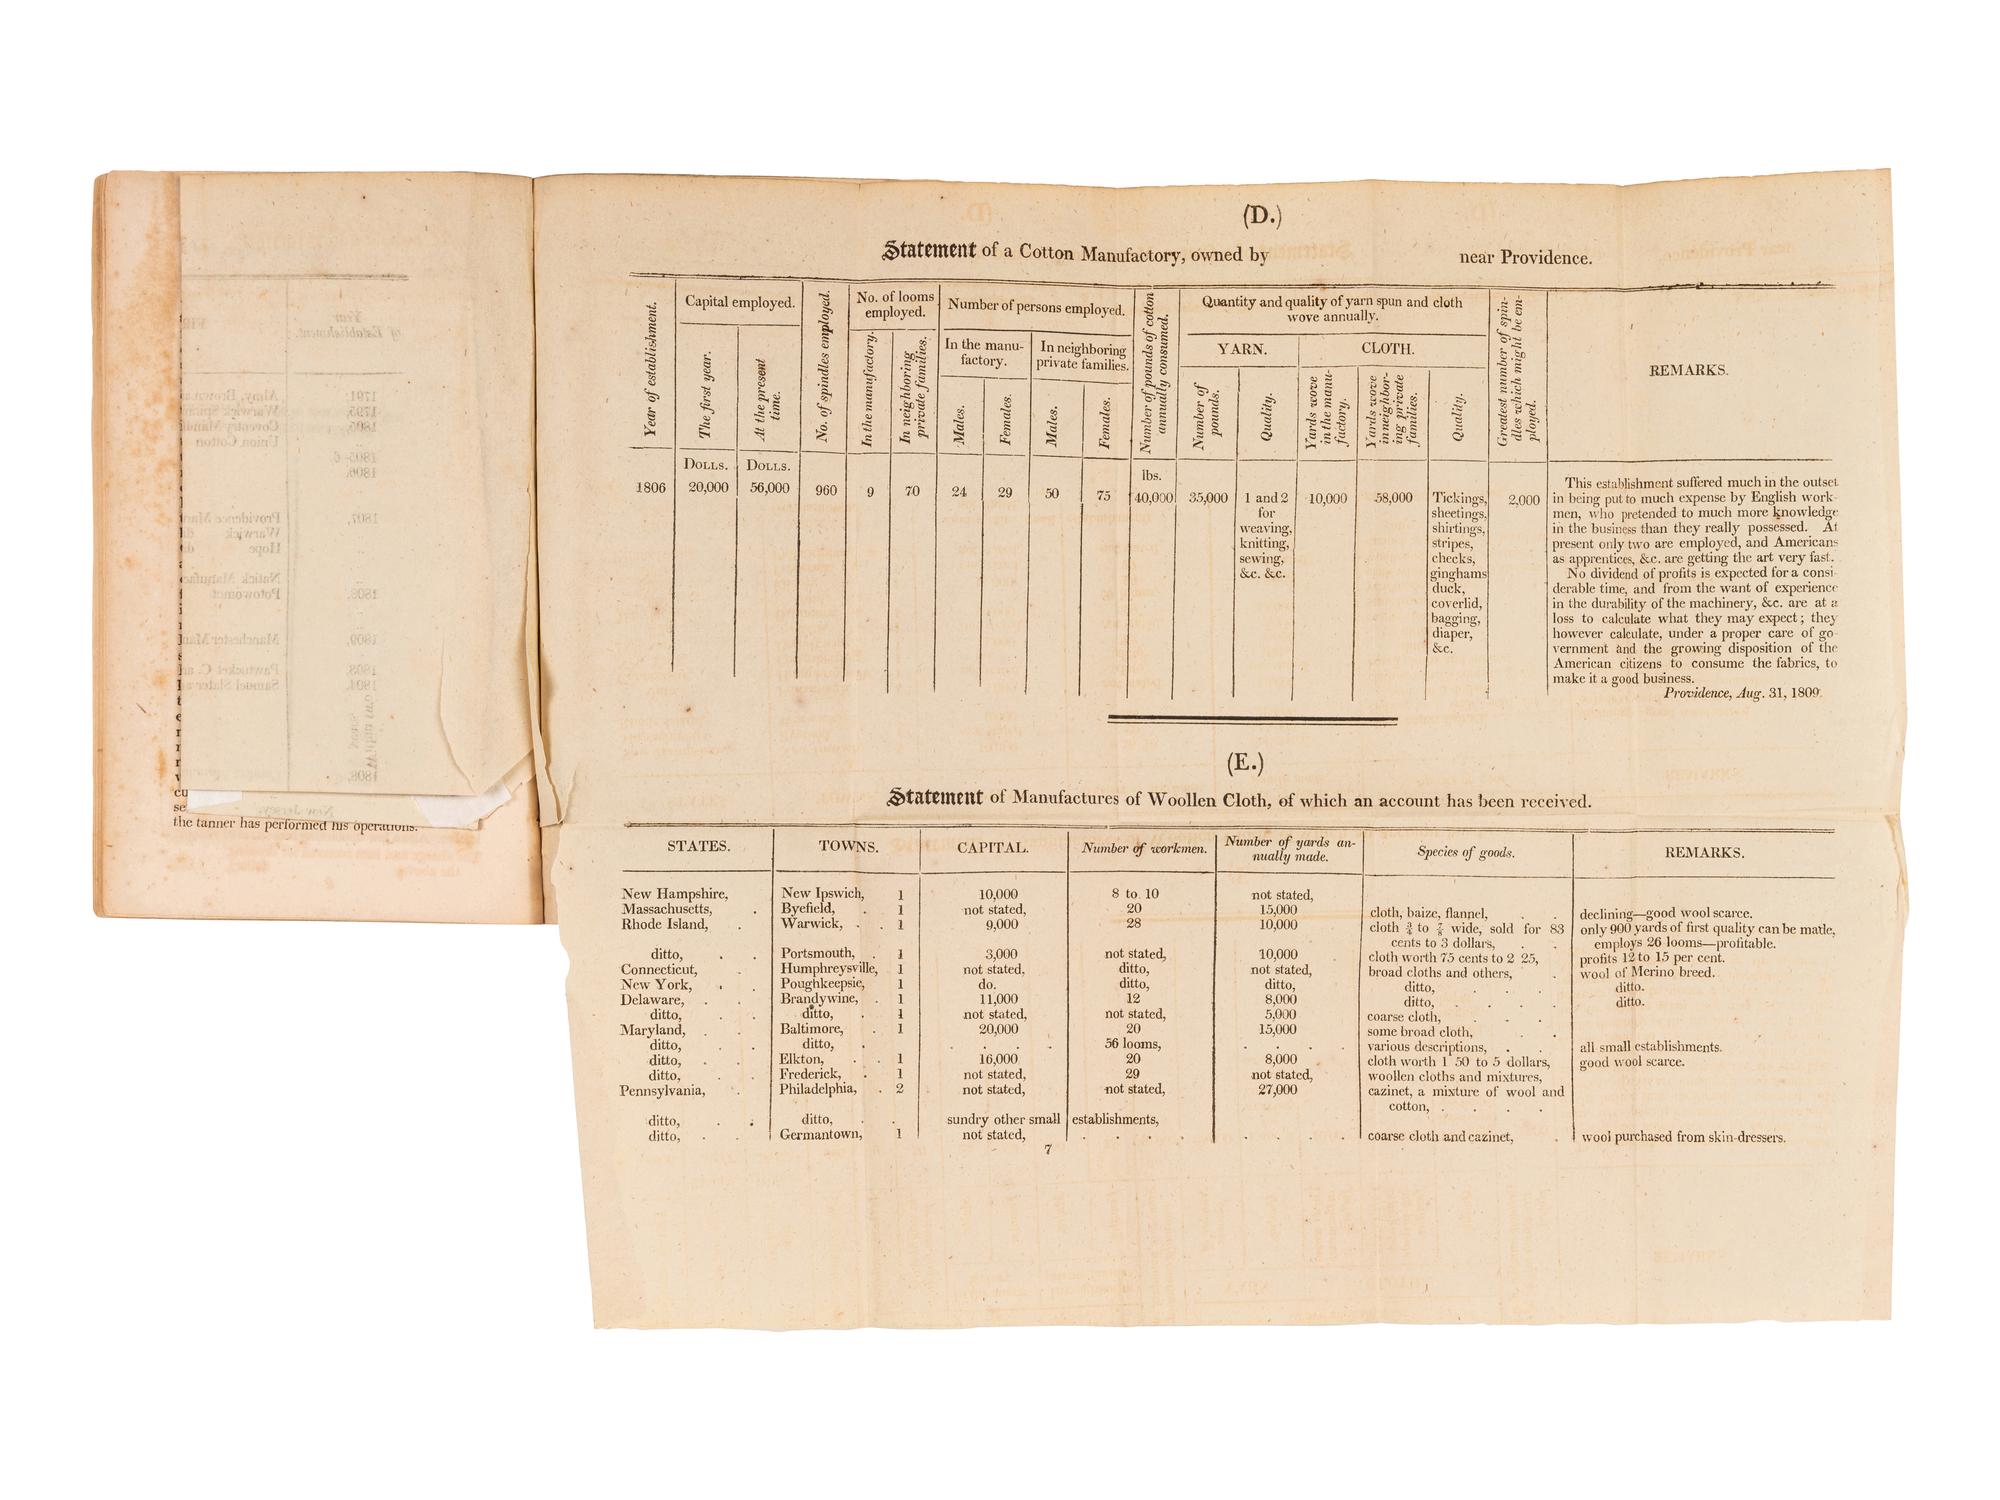 (D.)
Statement of a Cotton Manufactory, owned by near Providence.
Year of establishment.
Capital employed.
The first year.
At the present time.
No. of spindles employed.
No. of looms employed.
In the manufactory.
In neighboring private families.
Number of persons employed.
In the manu-
factory.
Males.
Females.
In neighboring
private families.
Males.
Females.
Number of pounds of cotton
annually consumed.
Quantity and quality of yarn spun and cloth
wove annually.
YARN.
Number of
pounds.
Quality.
CLOTH.
Yards wove
in the manu-
factory.
Yards wove
in neighbor-
ing private
families.
Quality.
Greatest number of spin-
dles which might be em-
ployed.
REMARKS.
DOLLS. DOLLS. lbs.
1806 20,000 56,000 960 9 70 24 29 50 75 40,000 35,000 1 and 2 10,000 58,000 Tickings, 2,000
for
weaving,
knitting,
sewing,
&c. &c.
sheetings,
shirtings,
stripes,
checks,
ginghams
duck,
coverlid,
bagging,
diaper,
&c.
This establishment suffered much in the outset
in being put to much expense by English work-
men, who pretended to much more knowledge
in the business than they really possessed. At
present only two are employed, and Americans
as apprentices, &c. are getting the art very fast.
No dividend of profits is expected for a consi-
derable time, and from the want of experience
in the durability of the machinery, &c. are at a
loss to calculate what they may expect; they
however calculate, under a proper care of go-
vernment and the growing disposition of the
American citizens to consume the fabrics, to
make it a good business.
Providence, Aug. 31, 1809.
(E.)
Statement of Manufactures of Woollen Cloth, of which an account has been received.
STATES. TOWNS. CAPITAL. Number of workmen. Number of yards an-
nually made. Species of goods. REMARKS.
New Hampshire, New Ipswich, 1 10,000 8 to 10 not stated,
Massachusetts, . Byefield, . 1 not stated, 20 15,000 cloth, baize, flannel, . . declining—good wool scarce.
Rhode Island, . Warwick, . . 1 9,000 28 10,000 cloth ¾ to ⅞ wide, sold for 83 only 900 yards of first quality can be made,
cents to 3 dollars, . . employs 26 looms—profitable.
ditto, . . Portsmouth, . 1 3,000 not stated, 10,000 cloth worth 75 cents to 2 25, profits 12 to 15 per cent.
Connecticut, . Humphreysville, 1 not stated, ditto, not stated, broad cloths and others, . wool of Merino breed.
New York, . . Poughkeepsie, 1 do. ditto, ditto, ditto, . . . ditto.
Delaware, . . Brandywine, . 1 11,000 12 8,000 ditto, . . . . ditto.
ditto, . . ditto, . 1 not stated, not stated, 5,000 coarse cloth, . . .
Maryland, . . Baltimore, . 1 20,000 20 15,000 some broad cloth, . .
ditto, . . ditto, . . . . . 56 looms, . . . . various descriptions, . . all small establishments.
ditto, . . Elkton, . . 1 16,000 20 8,000 cloth worth 1 50 to 5 dollars, good wool scarce.
ditto, . . Frederick, . 1 not stated, 29 not stated, woollen cloths and mixtures,
Pennsylvania, . Philadelphia, . 2 not stated, not stated, 27,000 cazinet, a mixture of wool and
cotton, . . . .
ditto, . . ditto, . . sundry other small establishments,
ditto, . . Germantown, 1 not stated, . . . . . . . . coarse cloth and cazinet, . wool purchased from skin-dressers.
7
the tanner has performed his operations.